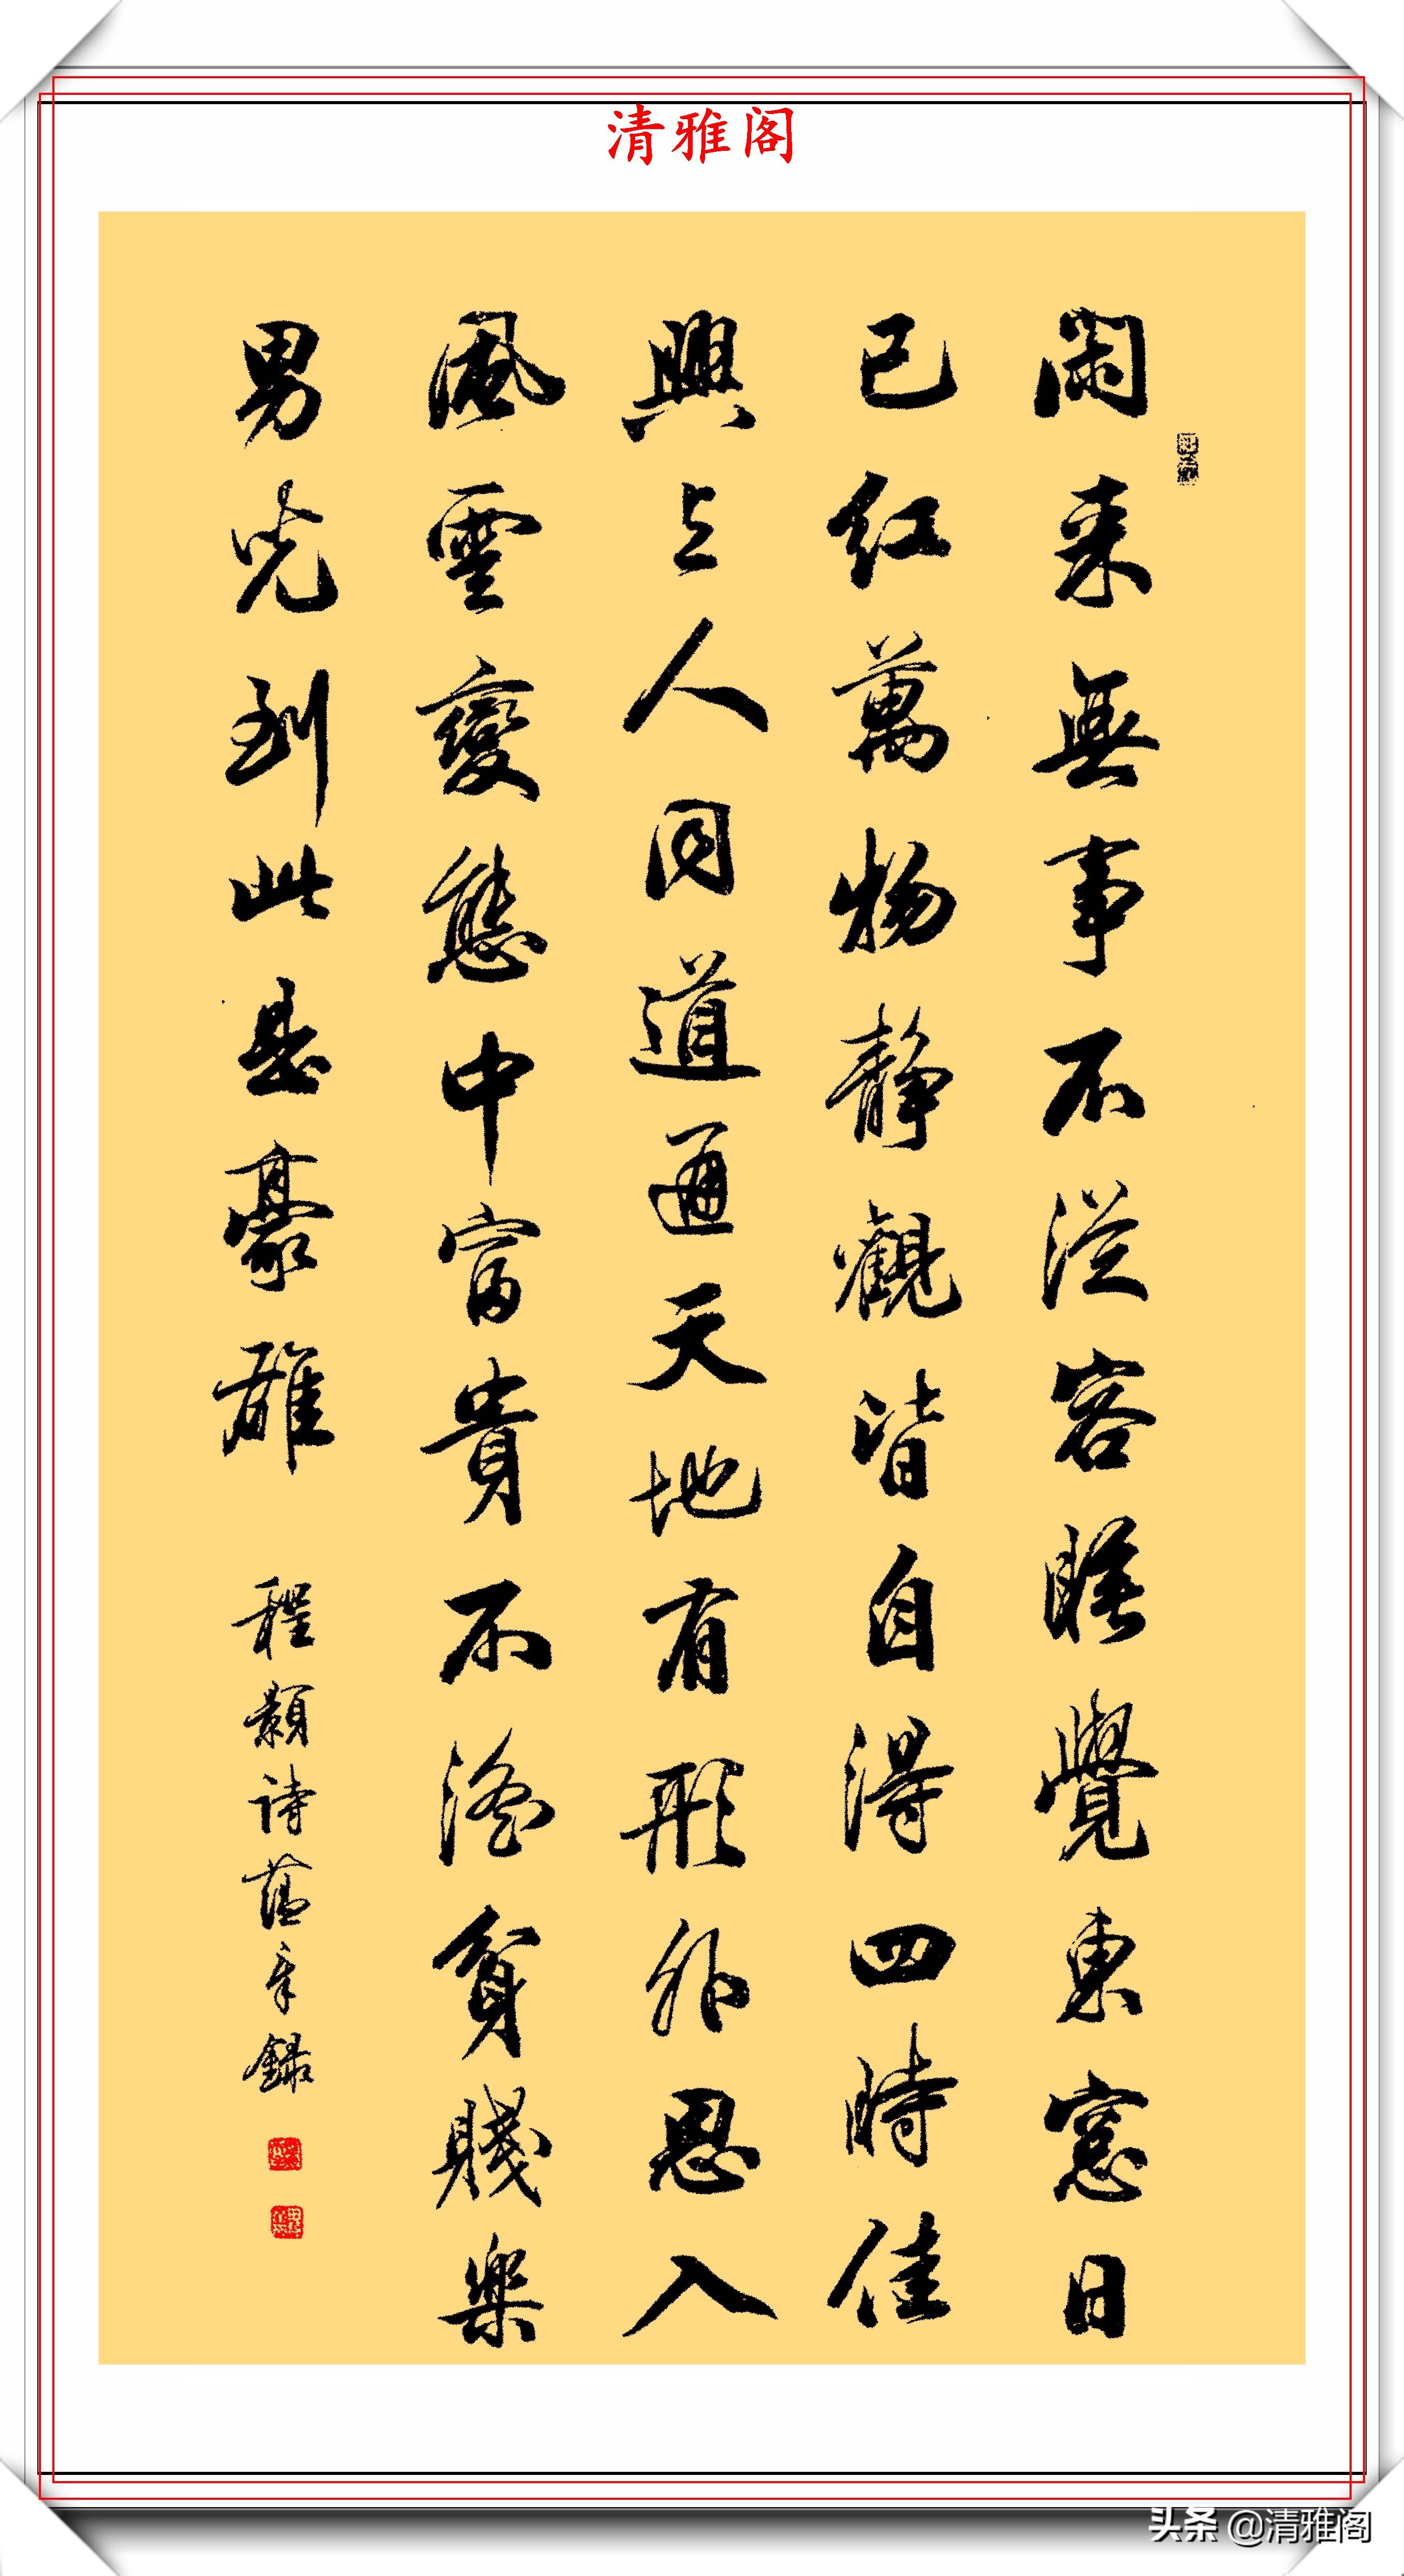 清雅阁
閑来無事不從容睡覺東窓日
已红萬物静觀皆自得四時佳
興与人同道通天地有形外思入
風雲變態中富貴不淫貧賤樂
男児到此是豪雄
程顥诗 錄
头条 @清雅阁